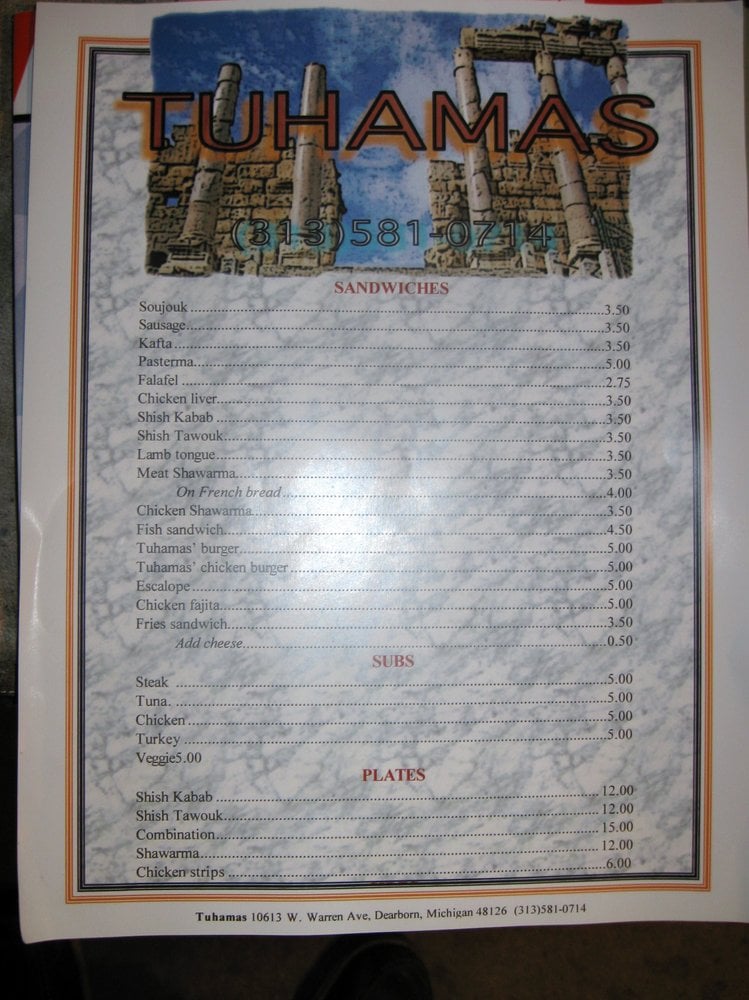 TUHAMAS
(313)581-0714
SANDWICHES
Soujouk ........3.50
Sausage........3.50
Kafta........3.50
Pasterma........5.00
Falafel ........2.75
Chicken liver........3.50
Shish Kabab ........3.50
Shish Tawouk........3.50
Lamb tongue........3.50
Meat Shawarma........3.50
On French bread........4.00
Chicken Shawarma........3.50
Fish sandwich........4.50
Tuhamas' burger........5.00
Tuhamas' chicken burger........5.00
Escalope........5.00
Chicken fajita........5.00
Fries sandwich........3.50
Add cheese........0.50
SUBS
Steak ........5.00
Tuna. ........5.00
Chicken........5.00
Turkey ........5.00
Veggie5.00
PLATES
Shish Kabab ........12.00
Shish Tawouk........12.00
Combination........15.00
Shawarma........12.00
Chicken strips ........6.00
Tuhamas 10613 W. Warren Ave, Dearborn, Michigan 48126 (313)581-0714